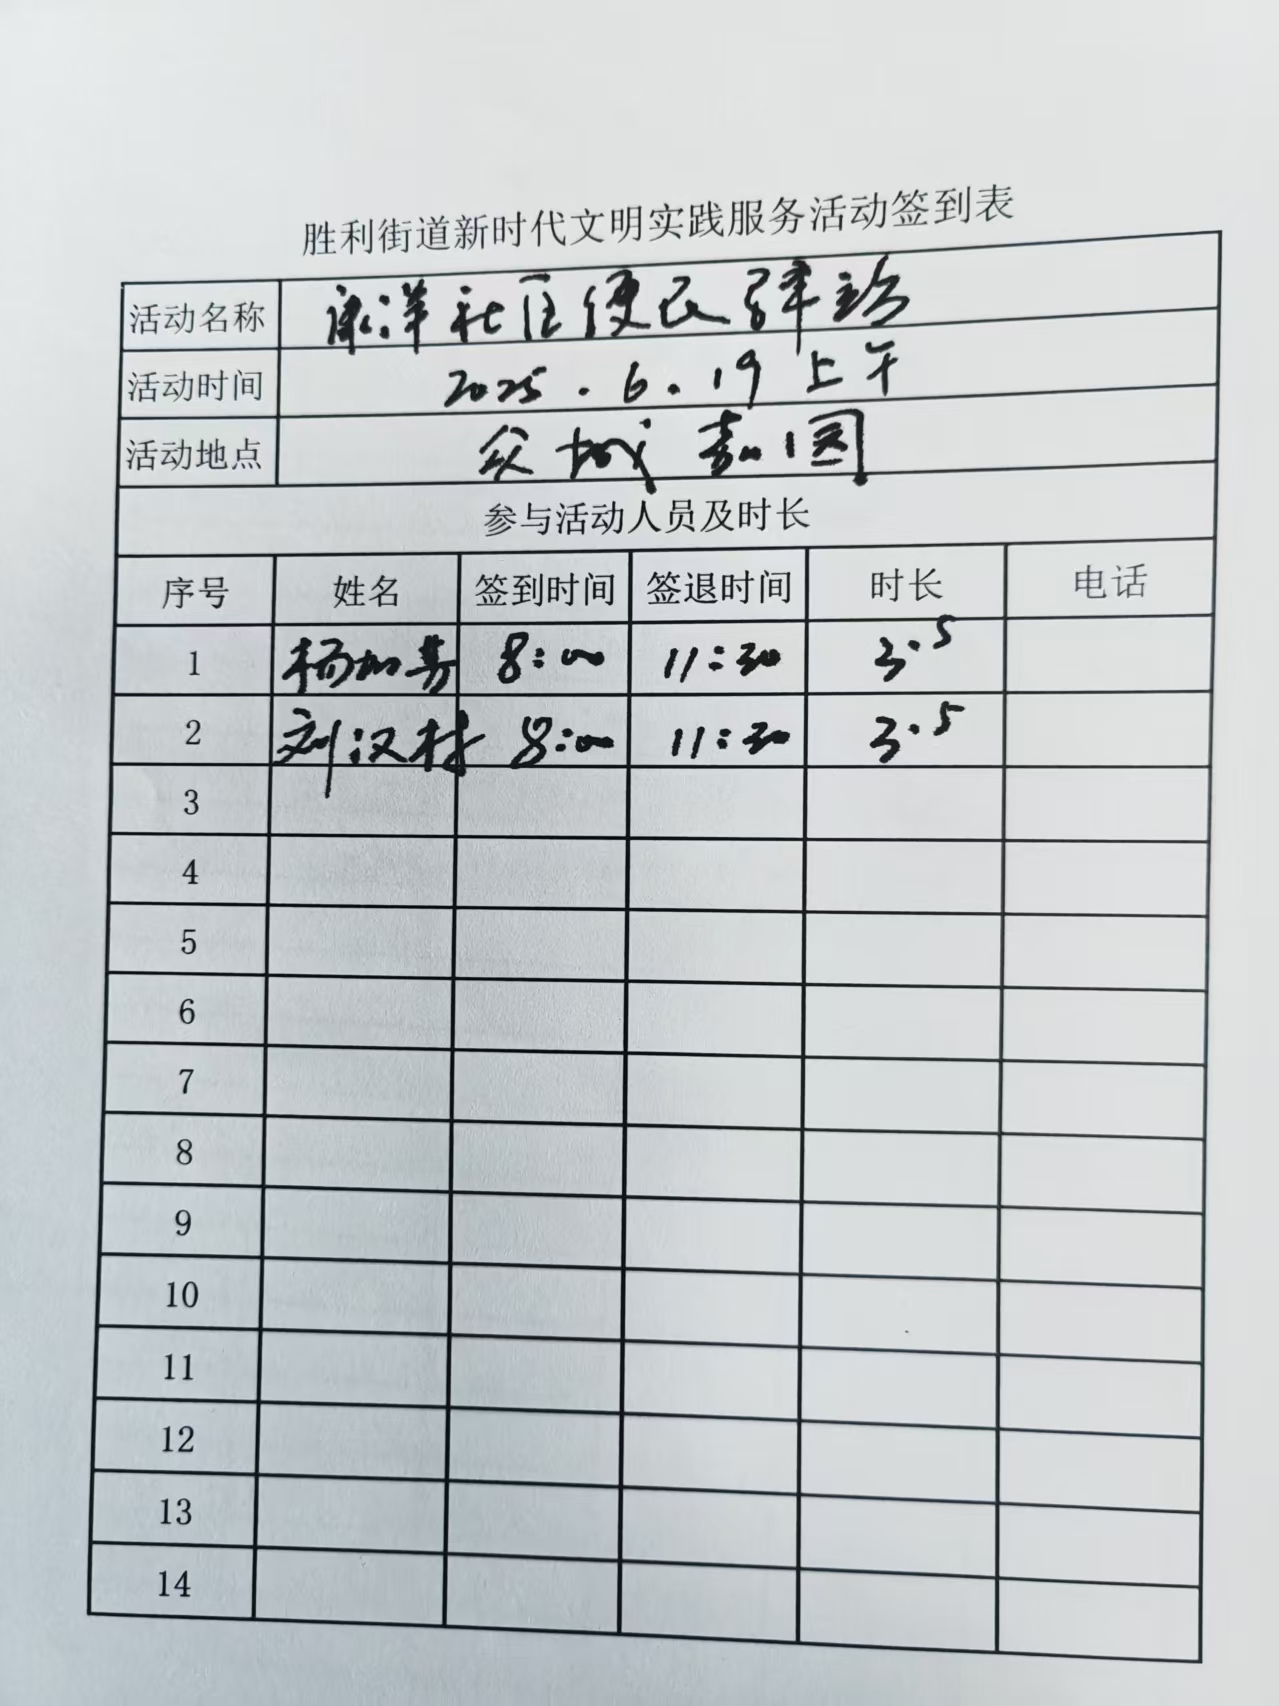 胜利街道新时代文明实践服务活动签到表
活动名称 康洋社区便民驿站
活动时间 2025.6.19 上午
活动地点 众城嘉园
参与活动人员及时长
序号 姓名 签到时间 签退时间 时长 电话
1 杨加 8:00 11:30 3.5
2 刘汉村 8:00 11:30 3.5
3
4
5
6
7
8
9
10
11
12
13
14